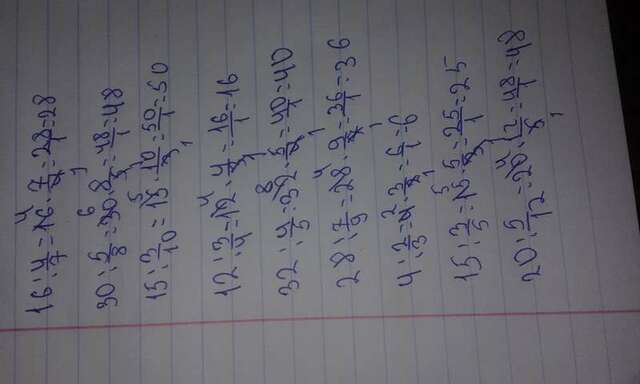 16 : 4/7 = 16 · 7/4 = 28/1 = 28
30 : 5/8 = 30 · 8/5 = 48/1 = 48
15 : 3/10 = 15 · 10/3 = 50/1 = 50
12 : 3/4 = 12 · 4/3 = 16/1 = 16
32 : 4/5 = 32 · 5/4 = 40/1 = 40
28 : 7/9 = 28 · 9/7 = 36/1 = 36
4 : 2/3 = 4 · 3/2 = 6/1 = 6
15 : 3/5 = 15 · 5/3 = 25/1 = 25
20 : 5/12 = 20 · 12/5 = 48/1 = 48